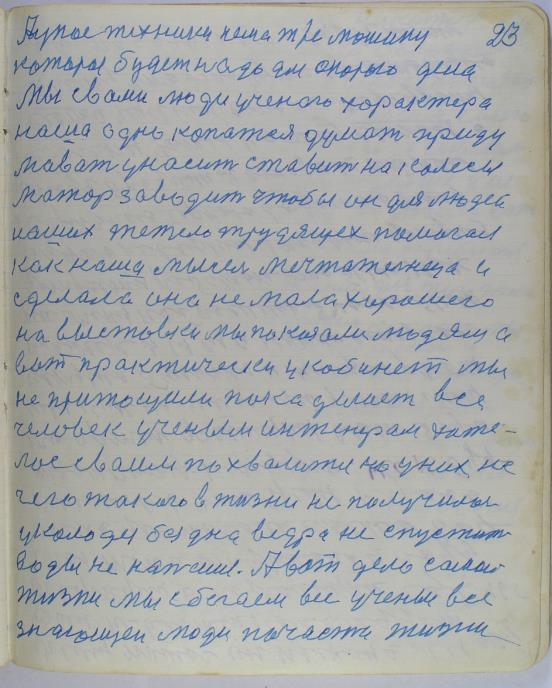 23
Глупое техники нема тре машину
которое будет надо для скорого дела
Мы с вами люди ученого характера
наша одно копатся думат приду
моват уносит ставит на колеси
матор заводит чтобы он для людей
наших тежело трудящех помогал
как наша мысля мечтательница и
сделала она не мала хорошего
на выставки мы показали людям а
вот практически у кабинет мы
не притощили пока делает все
человек ученым инженерам хоте-
лос своим похвалится но у них не
чего такого в жизни не получилос
у колодез без дна ведра не спустит
воды не напеш. А вот дело самой
жизни мы сбегаем все ученые все
знающеи люди начасти жизни